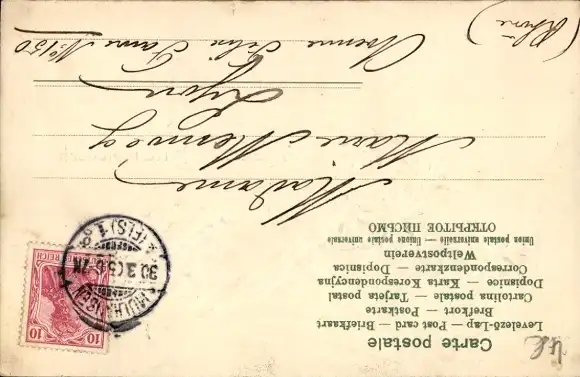 Carte postale
Levelező-Lap — Post card — Briefkaart
Brefkort — Postkarte
Cartolina postale — Tarjeta postal
Dopisnice — Karta Korespondencyjna
Correspondenzkarte — Dopisnica
Weltpostverein
Union postale universelle — Unione postale universale
ОТКРЫТОЕ ПИСЬМО
Madame
Marie
Lyon
Avenue Félix Faure No 150
(Rhône)
10 10
REICH
30 3
(ELS) 1